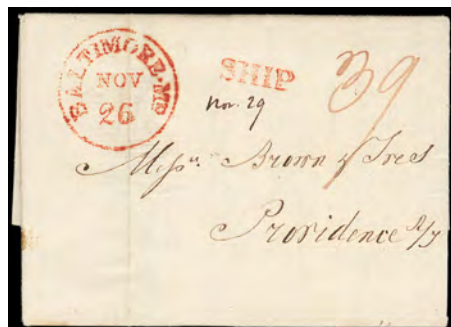 BALTIMORE. MD
NOV
26
SHIP
39
Nov. 29
Messrs. Brown & Ives
Providence